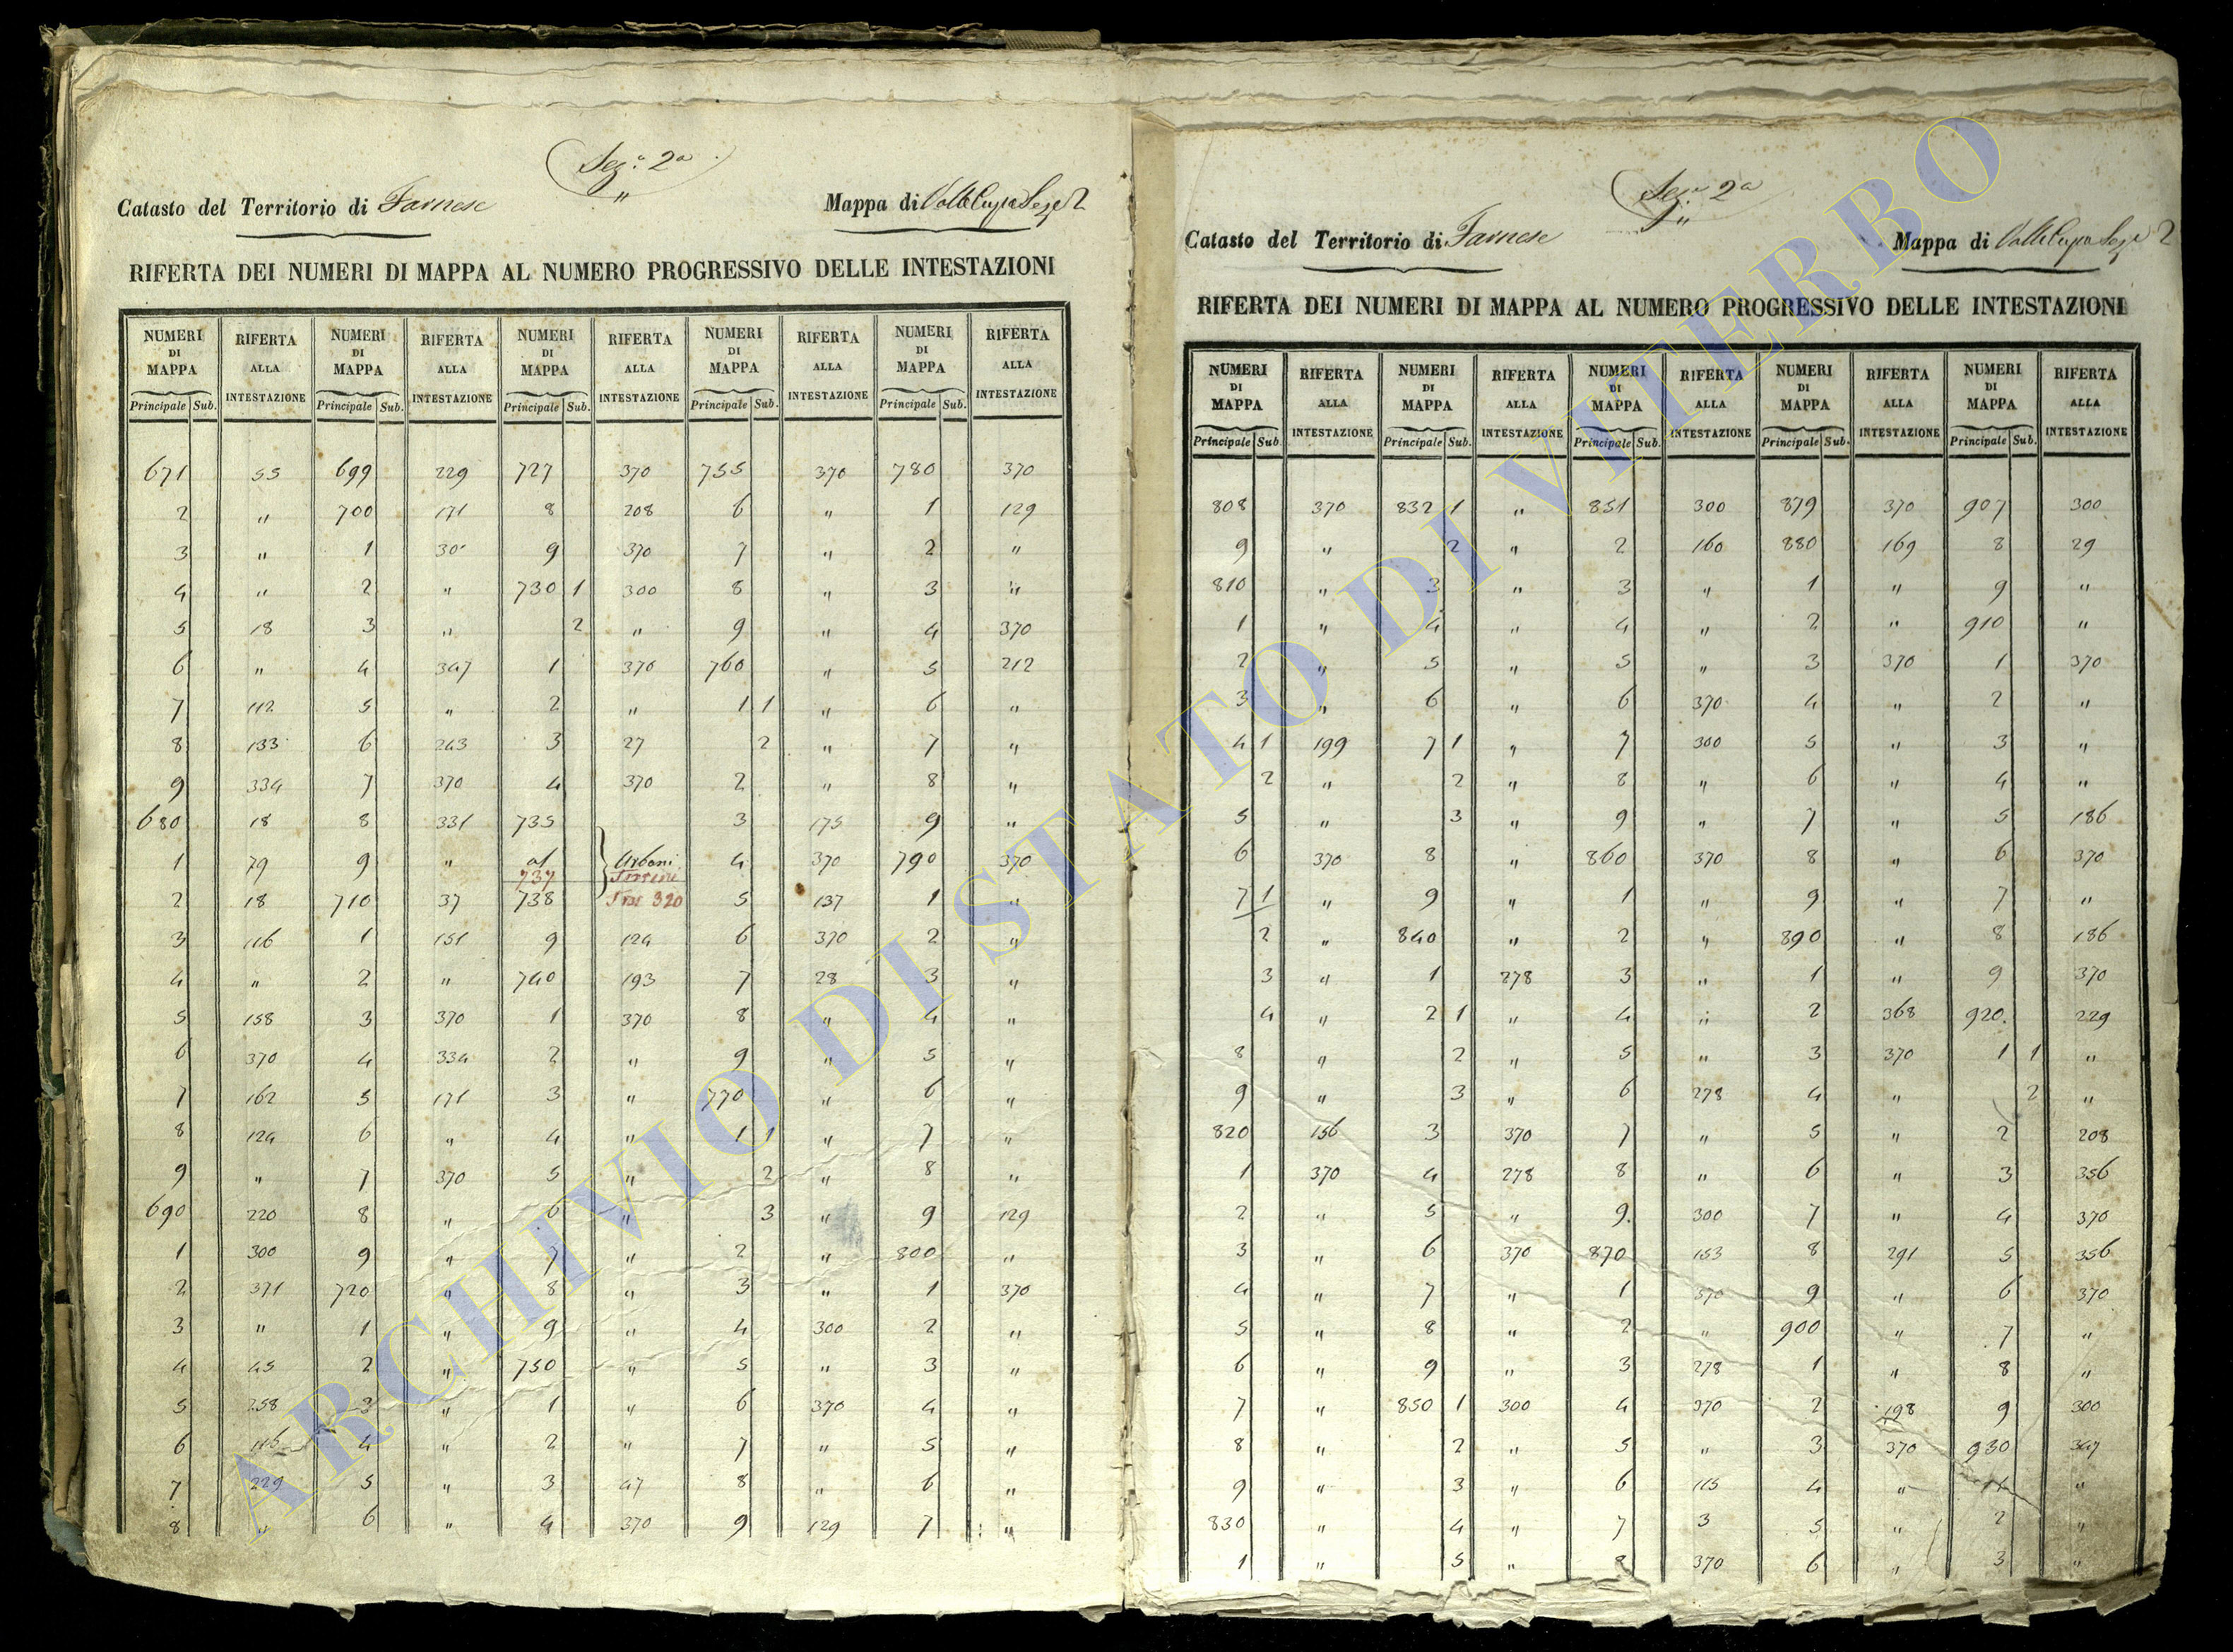 Sez.e 2a
Catasto del Territorio di Farnese Mappa di Valle Cupa Seze 2
RIFERTA DEI NUMERI DI MAPPA AL NUMERO PROGRESSIVO DELLE INTESTAZIONI
NUMERI DI MAPPA RIFERTA ALLA INTESTAZIONE NUMERI DI MAPPA RIFERTA ALLA INTESTAZIONE NUMERI DI MAPPA RIFERTA ALLA INTESTAZIONE NUMERI DI MAPPA RIFERTA ALLA INTESTAZIONE NUMERI DI MAPPA RIFERTA ALLA INTESTAZIONE
Principale Sub. Principale Sub. Principale Sub. Principale Sub. Principale Sub.
671 55 699 229 727 370 755 370 780 370
2 " 700 171 8 208 6 " 1 129
3 " 1 300 9 370 7 " 2 "
4 " 2 " 730 1 300 8 " 3 "
5 18 3 " 2 " 9 " 4 370
6 " 4 347 1 370 760 " 5 212
7 112 5 " 2 " 1 1 " 6 "
8 133 6 243 3 27 2 " 7 "
9 334 7 370 4 370 2 " 8 "
680 18 8 331 735 3 175 9 "
1 79 9 " al Urbani 4 370 790 370
737
2 18 710 37 738 320 5 137 1 "
3 116 1 151 9 124 6 370 2 "
4 " 2 " 740 193 7 28 3 "
5 158 3 370 1 370 8 " 4 "
6 370 4 334 2 " 9 " 5 "
7 162 5 171 3 " 770 " 6 "
8 124 6 " 4 " 1 1 " 7 "
9 " 7 370 5 " 2 " 8 "
690 220 8 " 6 " 3 " 9 129
1 300 9 " 7 " 2 " 800 "
2 371 720 " 8 " 3 " 1 370
3 " 1 " 9 " 4 300 2 "
4 45 2 " 750 " 5 " 3 "
5 258 3 " 1 " 6 370 4 "
6 116 4 " 2 " 7 " 5 "
7 229 5 " 3 47 8 " 6 "
8 " 6 " 4 370 9 129 7 "
Sez.e 2a
Catasto del Territorio di Farnese Mappa di Valle Cupa Seze 2
RIFERTA DEI NUMERI DI MAPPA AL NUMERO PROGRESSIVO DELLE INTESTAZIONI
NUMERI DI MAPPA RIFERTA ALLA INTESTAZIONE NUMERI DI MAPPA RIFERTA ALLA INTESTAZIONE NUMERI DI MAPPA RIFERTA ALLA INTESTAZIONE NUMERI DI MAPPA RIFERTA ALLA INTESTAZIONE NUMERI DI MAPPA RIFERTA ALLA INTESTAZIONE
Principale Sub. Principale Sub. Principale Sub. Principale Sub. Principale Sub.
808 370 832 1 " 851 300 879 370 907 300
9 " 2 " 2 160 880 169 8 29
810 " 3 " 3 " 1 " 9 "
1 " 4 " 4 " 2 " 910 "
2 " 5 " 5 " 3 370 1 370
3 " 6 " 6 370 4 " 2 "
4 1 199 7 1 " 7 300 5 " 3 "
2 " 2 " 8 " 6 " 4 "
5 " 3 " 9 " 7 " 5 186
6 370 8 " 860 370 8 " 6 370
7 1 " 9 " 1 " 9 " 7 "
2 " 840 " 2 " 890 " 8 186
3 " 1 278 3 " 1 " 9 370
4 " 2 1 " 4 " 2 368 920 229
8 " 2 " 5 " 3 370 1 1 "
9 " 3 " 6 278 4 " 2 "
820 156 3 370 7 " 5 " 2 208
1 370 4 278 8 " 6 " 3 356
2 " 5 " 9 300 7 " 4 370
3 " 6 370 870 153 8 291 5 356
4 " 7 " 1 370 9 " 6 370
5 " 8 " 2 " 900 " 7 "
6 " 9 " 3 278 1 " 8 "
7 " 850 1 300 4 370 2 198 9 300
8 " 2 " 5 " 3 370 930 347
9 " 3 " 6 115 4 " 1 "
830 " 4 " 7 3 5 " 2 "
1 " 5 " 8 370 6 " 3 "
ARCHIVIO DI STATO DI VITERBO